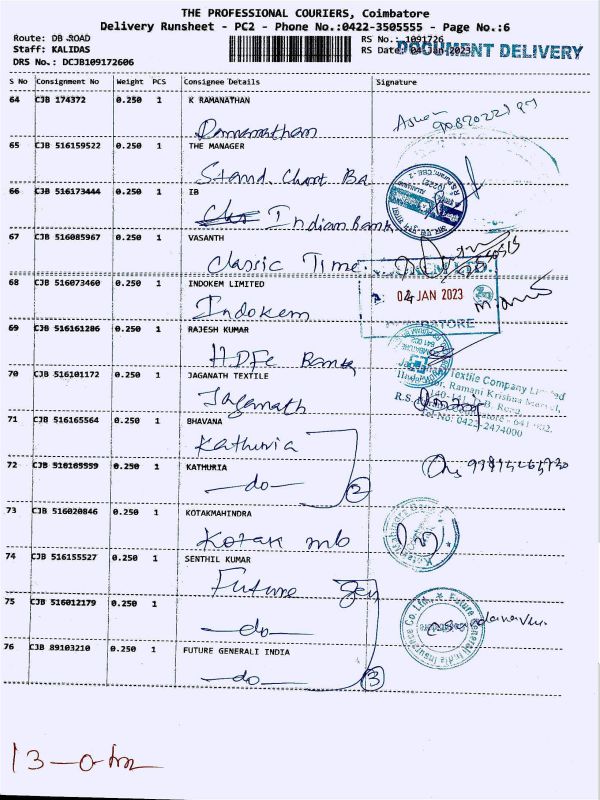 THE PROFESSIONAL COURIERS, Coimbatore
Delivery Runsheet - PC2 - Phone No.:0422-3505555 - Page No.:6
Route: DB ROAD
Staff: KALIDAS
DRS No.: DCJB109172606
RS No.: 1091726
RS Date: 04-Jan-2023
DOCUMENT DELIVERY
S No Consignment No Weight PCS Consignee Details Signature
64 CJB 174372 0.250 1 K RAMANATHAN
Ramanathan
65 CJB 516159522 0.250 1 THE MANAGER
Stand. Chart Ba
66 CJB 516173444 0.250 1 IB
Indian Bank
67 CJB 516085967 0.250 1 VASANTH
Classic Time
68 CJB 516073460 0.250 1 INDOKEM LIMITED
Indokem
04 JAN 2023
69 CJB 516161286 0.250 1 RAJESH KUMAR
HDFC Bank
70 CJB 516101172 0.250 1 JAGANATH TEXTILE
Jaganath
Textile Company Limited
Ramani Krishna
Tel No: 0423-2474000
71 CJB 516165564 0.250 1 BHAVANA
Kathuria
72 CJB 516165559 0.250 1 KATHURIA
—do— 2
73 CJB 516020846 0.250 1 KOTAKMAHINDRA
Kotak mb
74 CJB 516155527 0.250 1 SENTHIL KUMAR
Future Gen
75 CJB 516012179 0.250 1
—do—
Future Generali India Insurance Co. Ltd.
76 CJB 89103210 0.250 1 FUTURE GENERALI INDIA
—do— 3